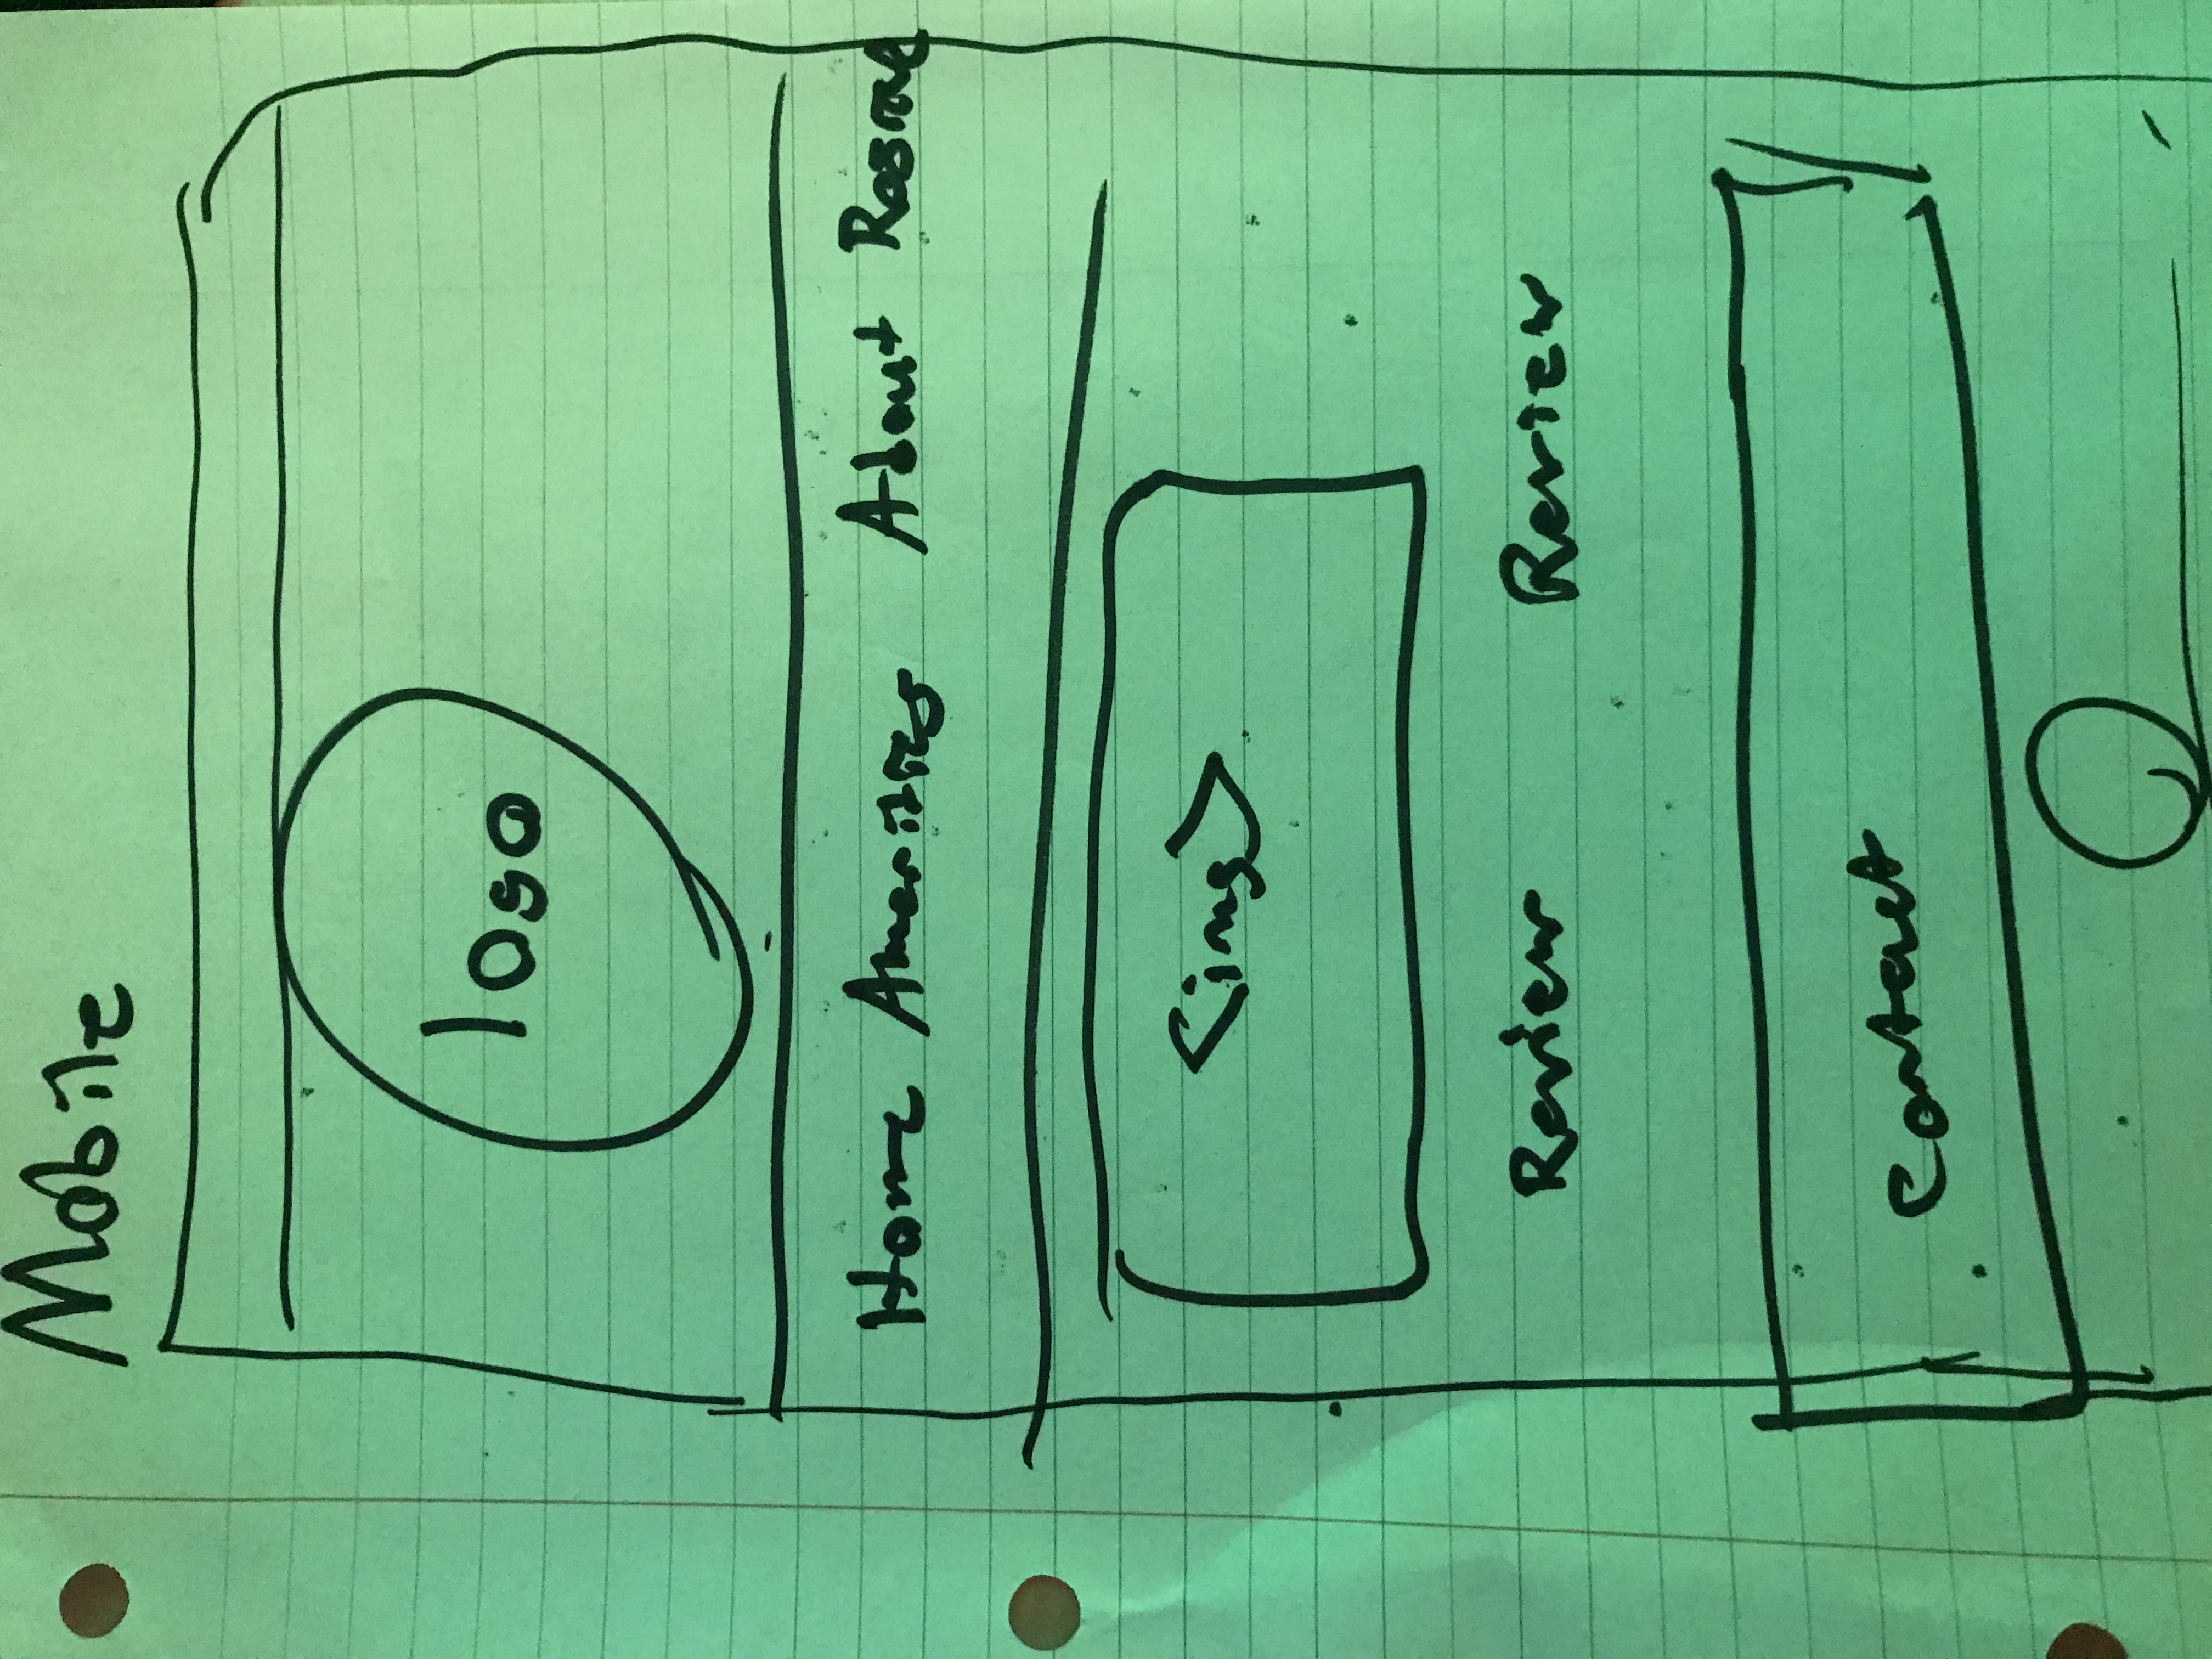 Mobile
logo
Home Amenities About
<img>
Review Review
Contact